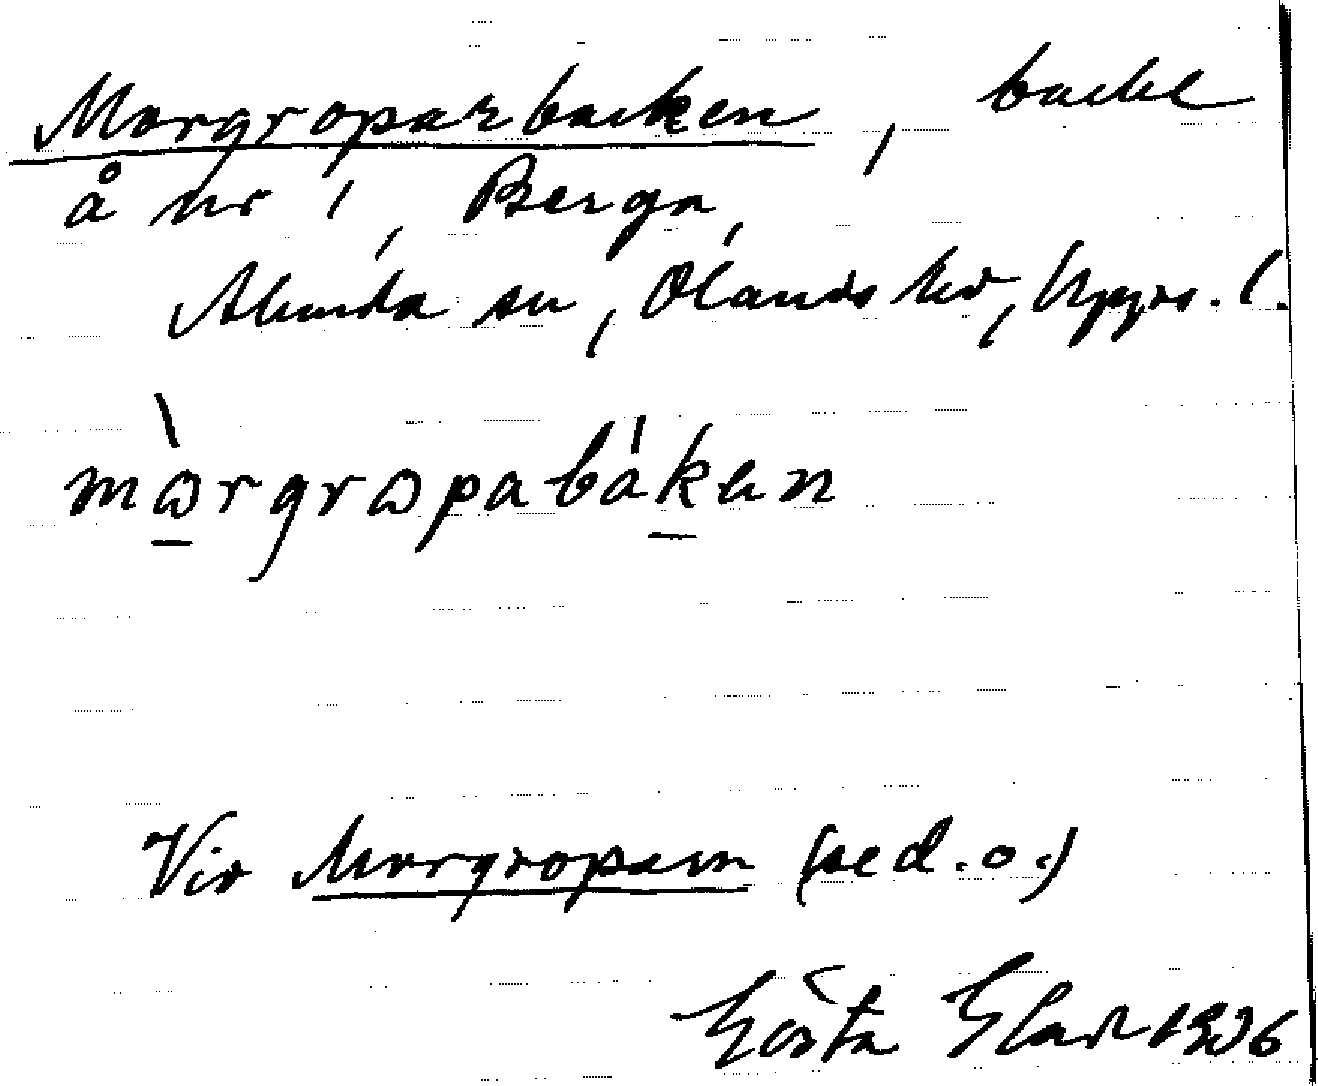 Morgroparbacken, backe
å nr 1, Berga,
Alunda sn, Olands hd, Upps. l.
mòrgropabákan
Vid Morgroparna (sed.o.)
Gösta Elart 1936